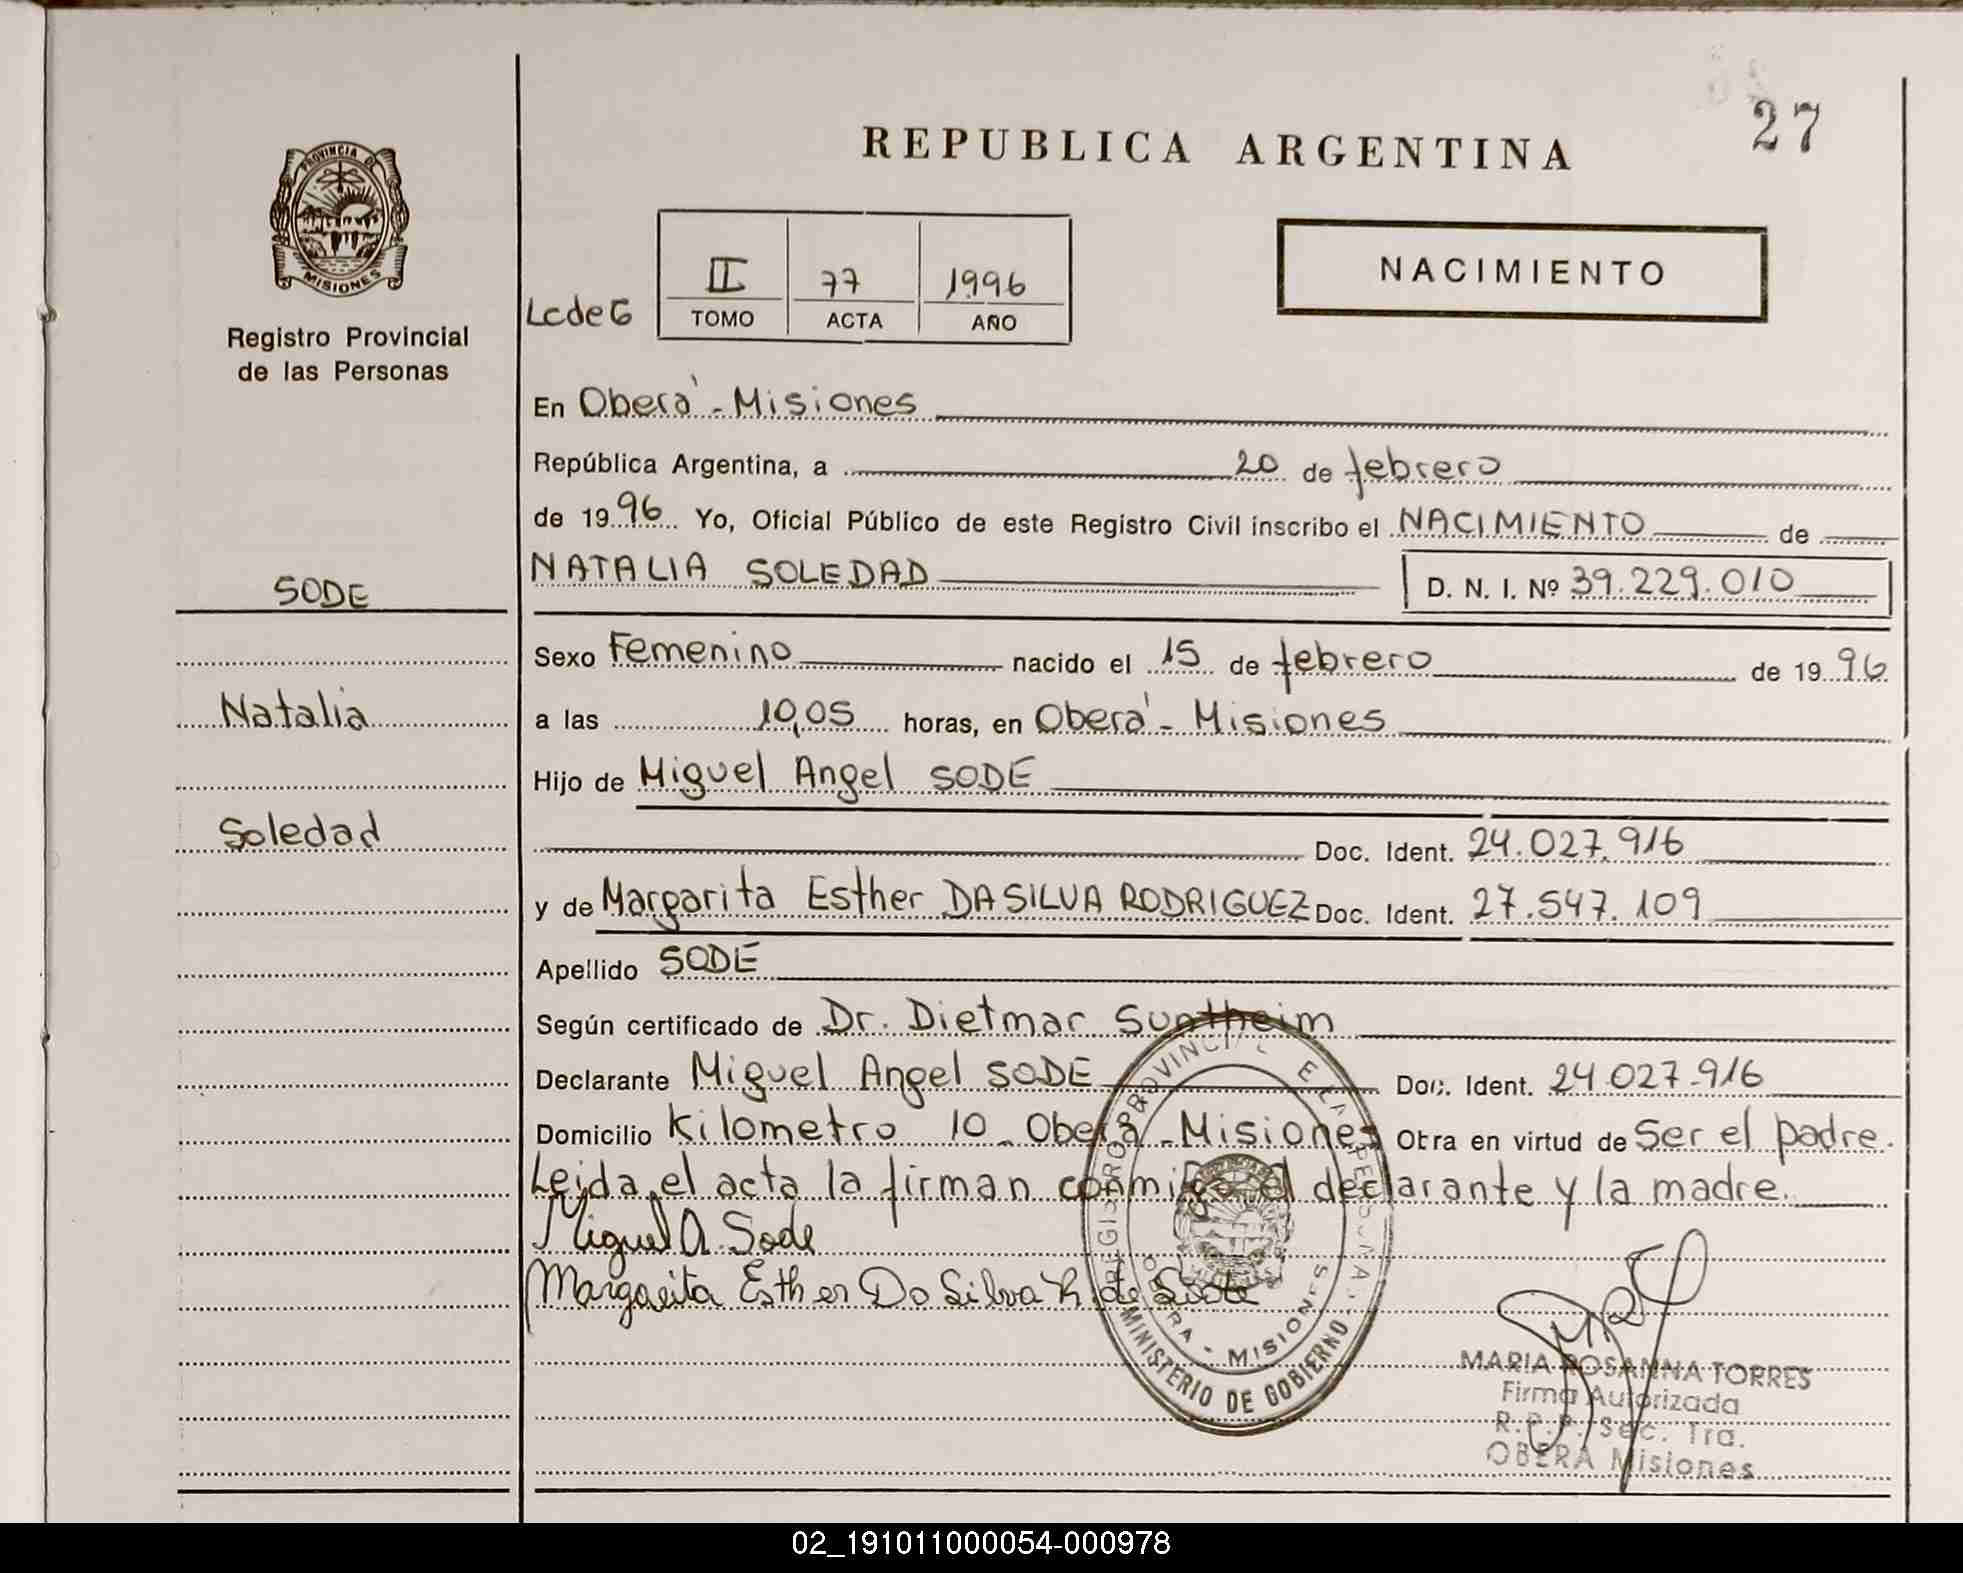 27
REPUBLICA ARGENTINA
PROVINCIA DE
MISIONES
Registro Provincial
de las Personas
NACIMIENTO
LcdeG
II 77 1996
TOMO ACTA AÑO
En Oberá - Misiones
República Argentina, a 20 de febrero
de 1996 Yo, Oficial Público de este Registro Civil inscribo el NACIMIENTO de
NATALIA SOLEDAD D. N. I. Nº 39.229.010
SODE
Natalia
Soledad
Sexo Femenino nacido el 15 de febrero de 1996
a las 10,05 horas, en Oberá - Misiones
Hijo de Miguel Angel SODE
Doc. Ident. 24.027.916
y de Margarita Esther DASILVA RODRIGUEZ Doc. Ident. 27.547.109
Apellido SODE
Según certificado de Dr. Dietmar Suntheim
Declarante Miguel Angel SODE Doc. Ident. 24.027.916
Domicilio Kilometro 10 - Oberá - Misiones Otra en virtud de Ser el padre.
Leida el acta la firman conmigo el declarante y la madre.
Miguel A. Sode
Margarita Esther Da Silva R. de Sode
REGISTRO PROVINCIAL DE LAS PERSONAS
OBERA - MISIONES
MINISTERIO DE GOBIERNO
MARIA ROSANNA TORRES
Firma Autorizada
R.P.P. Sec. 1ra.
OBERA Misiones
02_191011000054-000978